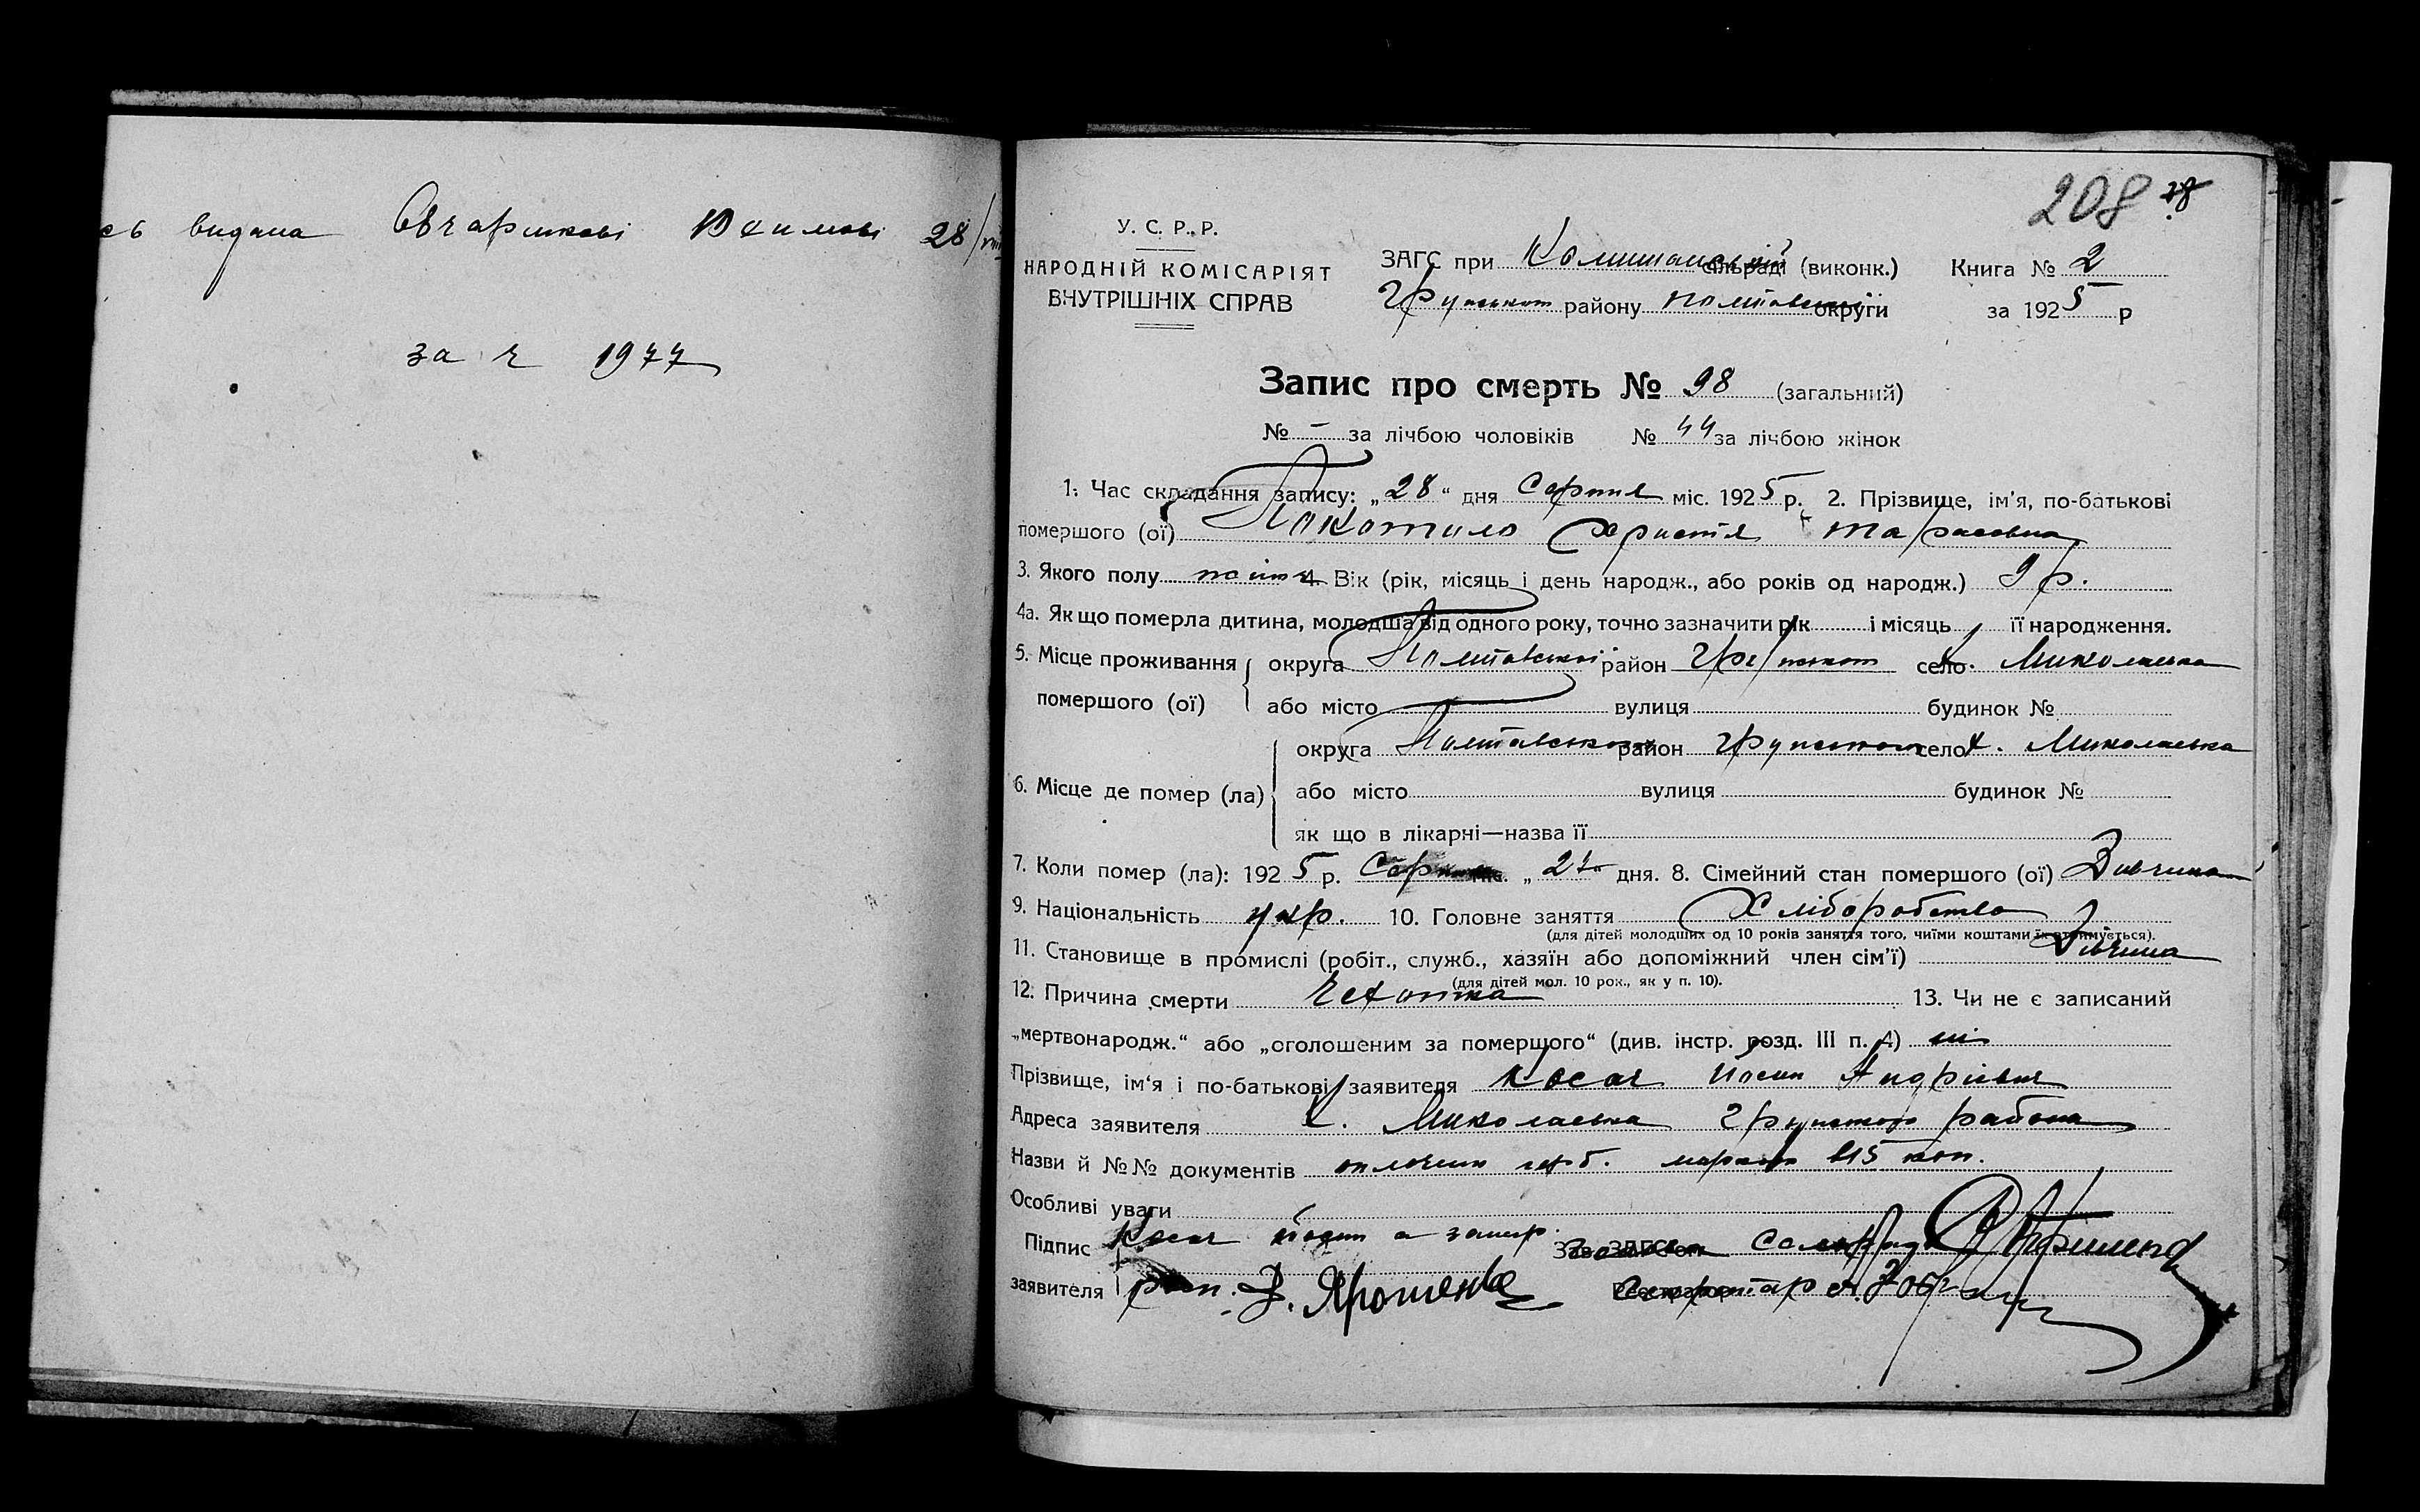 видана Овчарикові Юхимові 28/
за ч 1977
208 78
У. С. Р. Р.
НАРОДНІЙ КОМІСАРІЯТ
ВНУТРІШНІХ СПРАВ
ЗАГС при Комишанській сільраді (виконк.) Книга № 2
Грунськом району Полтавської округи за 1925 р
Запис про смерть № 98 (загальний)
№ - за лічбою чоловіків № 44 за лічбою жінок
1. Час складання запису: „28“ дня Серпня міс. 1925 р. 2. Прізвище, ім'я, по-батькові
помершого (ої) Покотило Христя Тарасовна
3. Якого полу жіноч 4. Вік (рік, місяць і день народж., або років од народж.) 9 р.
4а. Як що померла дитина, молодша від одного року, точно зазначити рік і місяць її народження.
5. Місце проживання помершого (ої) округа Полтавської район Грунськом село х. Миколаевка
або місто вулиця будинок №
6. Місце де помер (ла) округа Полтавською район Грунськом село х. Миколаевка
або місто вулиця будинок №
як що в лікарні—назва її
7. Коли помер (ла): 1925 р. Серпня міс. „27“ дня. 8. Сімейний стан помершого (ої) Дивчина
9. Національність укр. 10. Головне заняття Хліборобство
(для дітей молодших од 10 років заняття того, чиїми коштами їх отримується).
11. Становище в промислі (робіт., служб., хазяїн або допоміжний член сім'ї) Дівчина
(для дітей мол. 10 рок., як у п. 10).
12. Причина смерти Чехотка 13. Чи не є записаний
„мертвонародж.“ або „оголошеним за помершого“ (див. інстр. розд. III п. А) ні
Прізвище, ім'я і по-батькові заявителя Косач Йосип Андрієвич
Адреса заявителя х. Миколаевка Грунського района
Назви й №№ документів оплочено герб. маркою 15 коп.
Особливі уваги
Підпис заявителя Косач Йосип а за
роз. Я. Ярошенко
Зав. ЗАГС'ом Голова Сельради
Секретар